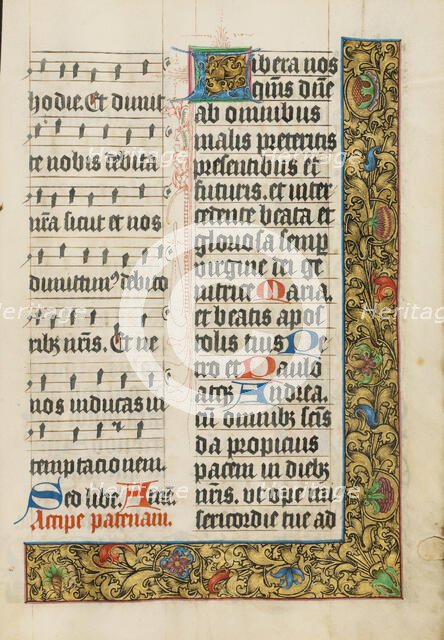 hodie. Et dimit
te nobis debita
nr̄a sicut et nos
dimittim⁹ debito
ribꝫ nr̄is. Et ne
nos inducas in
temptacionem.
Sed libe. Am̄.
Accipe patenam.
Libera nos
qm̄s dn̄e
ab omnibus
malis preteritis
presentibus et
futuris. et inter
cedente beata et
gloriosa semp
virgine dei ge
nitrice Maria.
et beatis apos
tolis tuis Pe
tro et Paulo
atqꝫ Andrea.
cū omnibꝫ sc̄is
da propicius
pacem in diebꝫ
nr̄is. ut ope mi
sericordie tue ad
Heritage
Images